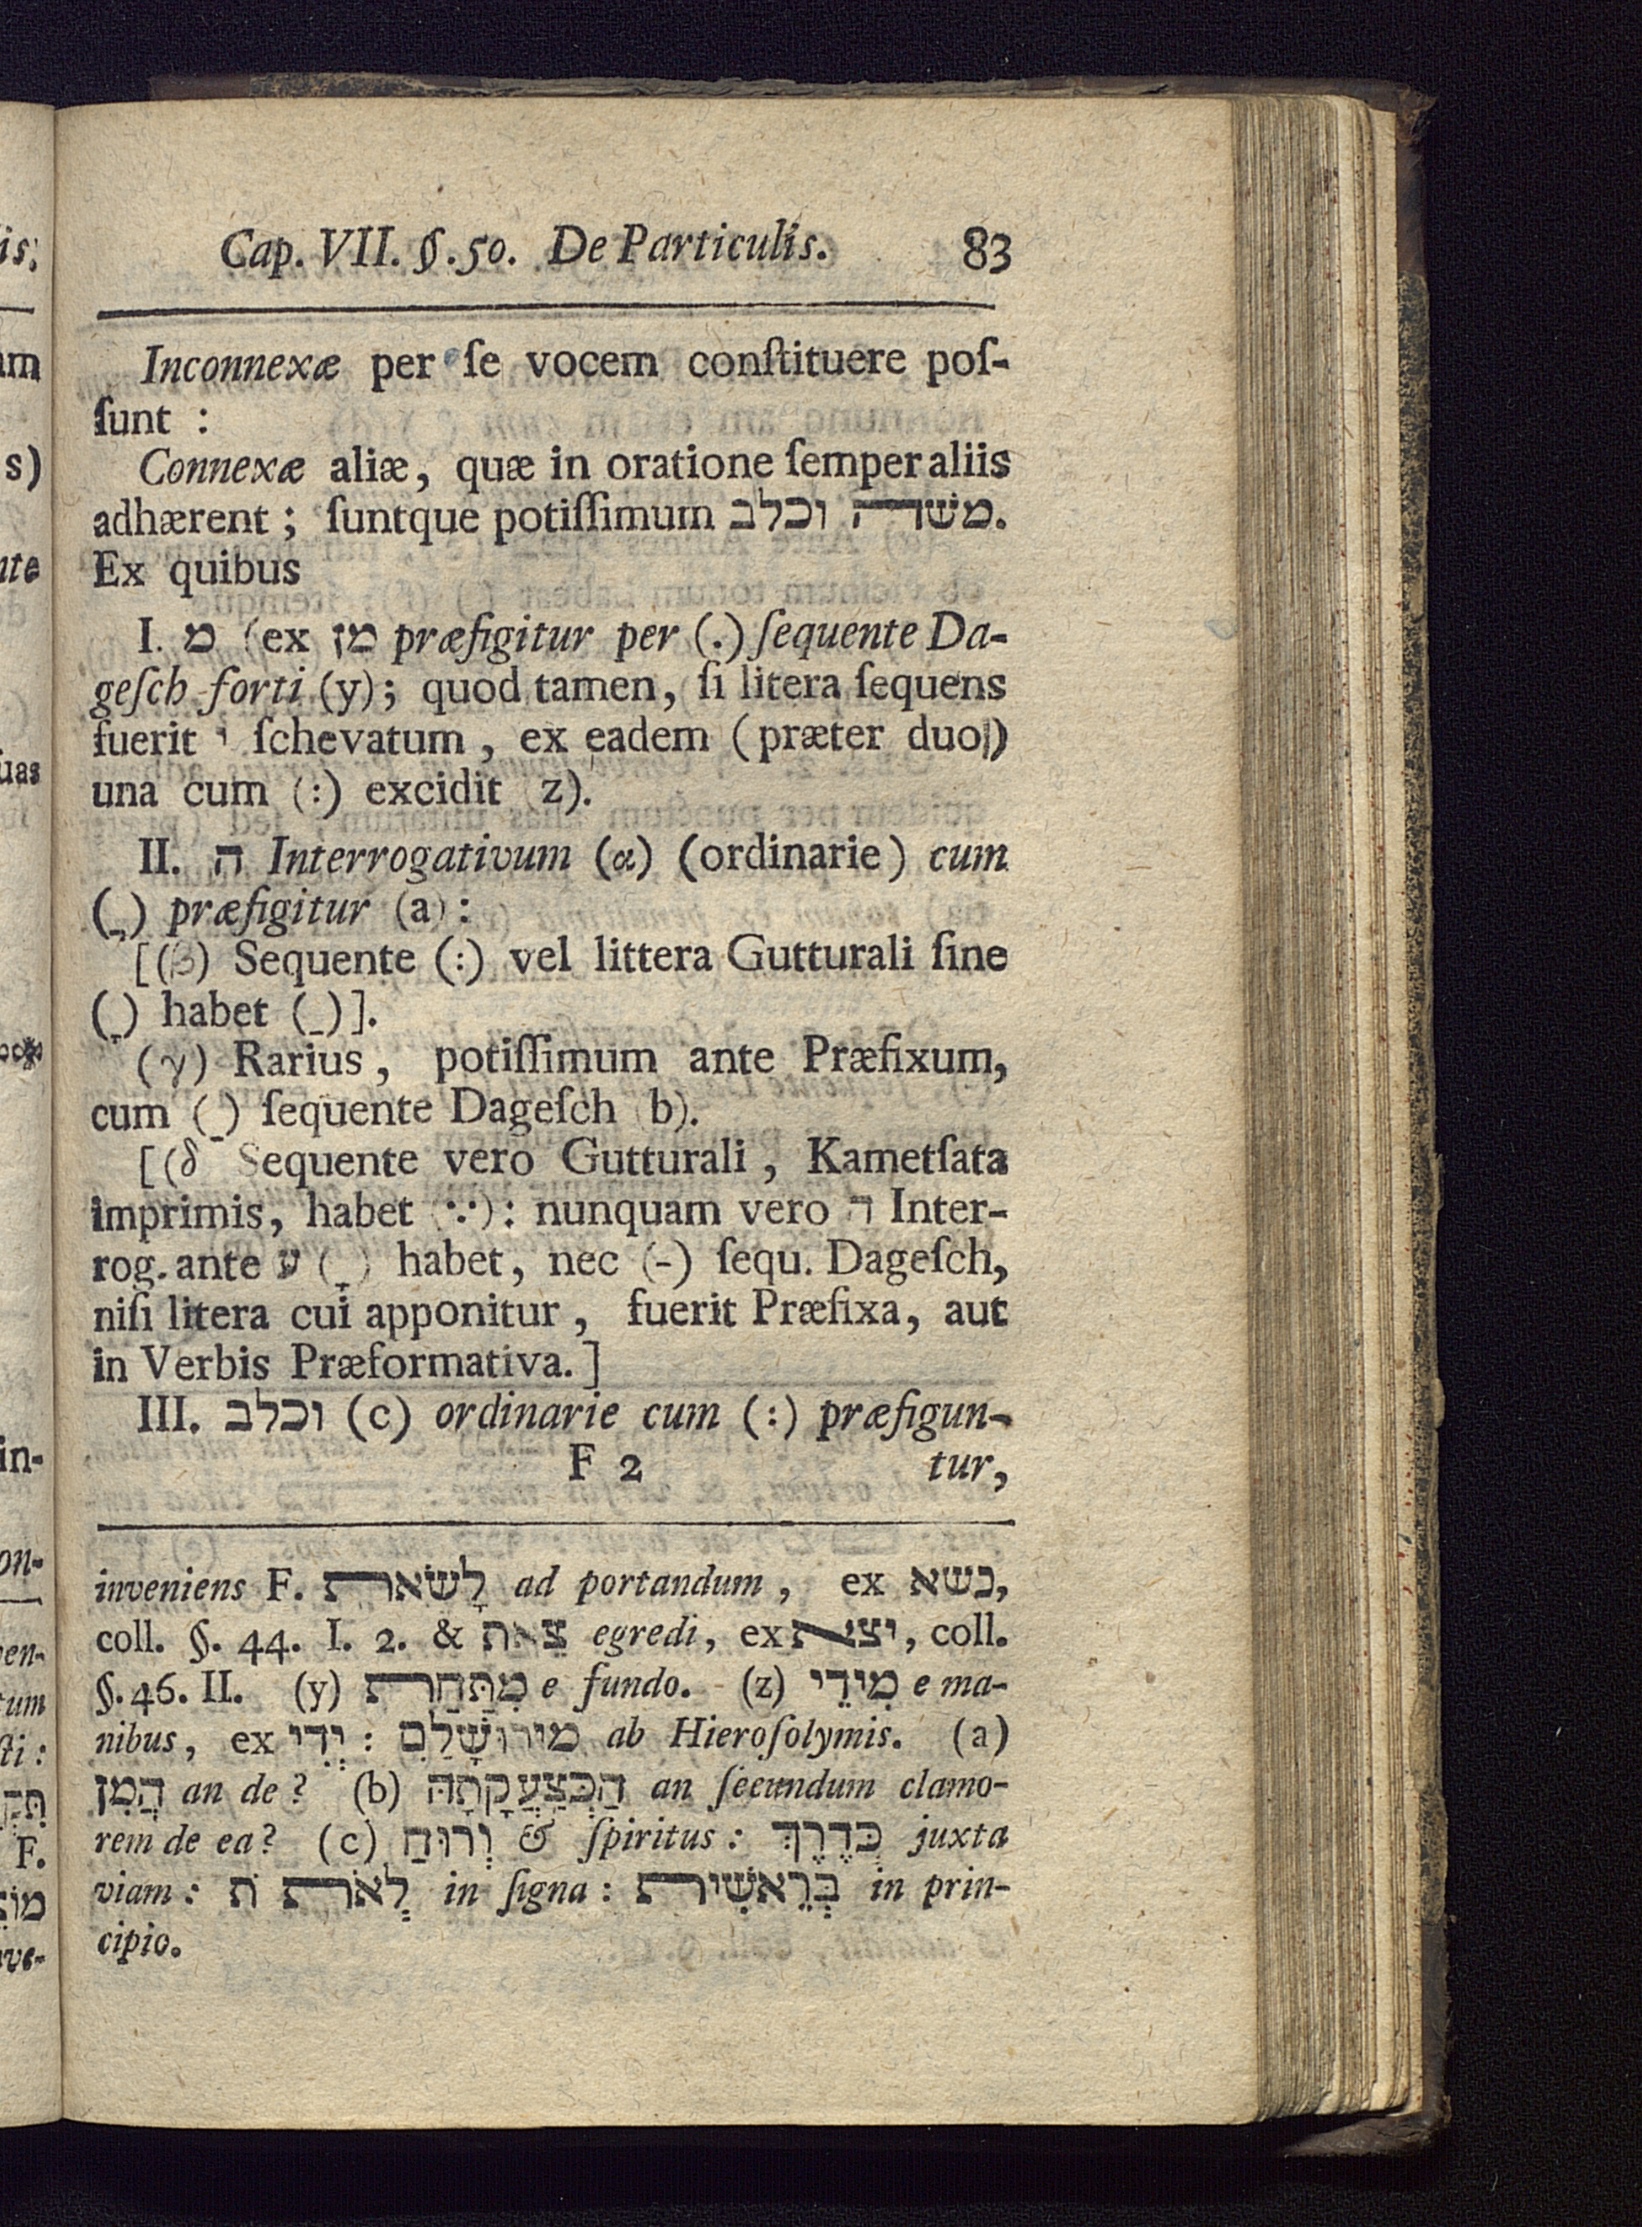 Cap. VII. §. 50. De Particulis. 83
Inconnexæ per ſe vocem conſtituere poſ-
ſunt :
Connexæ aliæ, quæ in oratione ſemper aliis
adhærent ; ſuntque potiſſimum משרה וכלב.
Ex quibus
I. מ (ex מן præfigitur per (.) ſequente Da-
geſch forti (y); quod tamen, ſi litera ſequens
fuerit י ſchevatum, ex eadem (præter duo)
una cum (:) excidit z).
II. ה Interrogativum (α) (ordinarie) cum
(ֲ) præfigitur (a) :
[(β) Sequente (:) vel littera Gutturali ſine
(ָ) habet (ַ)].
(γ) Rarius, potiſſimum ante Præfixum,
cum (ַ) ſequente Dageſch b).
[(δ Sequente vero Gutturali, Kametſata
imprimis, habet (∵) : nunquam vero ה Inter-
rog. ante ע (ָ) habet, nec (-) ſequ. Dageſch,
niſi litera cui apponitur, fuerit Præfixa, aut
in Verbis Præformativa.]
III. וכלב (c) ordinarie cum (:) præfigun-
F 2 tur,
inveniens F. לָשׂאת ad portandum, ex כשא,
coll. §. 44. I. 2. & צֵאת egredi, ex יצא, coll.
§. 46. II. (y) מִתַּחַת e fundo. (z) מִידֵי e ma-
nibus, ex יְדֵי : מירוּשָׁלַםִ ab Hieroſolymis. (a)
הֲמִן an de ? (b) הַכְּצַעֲקָתָהּ an ſecundum clamo-
rem de ea? (c) וְרוּחַ & ſpiritus : כְּדֶרֶךְ juxta
viam : לְאֹת ת in ſigna : בְּרֵאשִׁית in prin-
cipio.